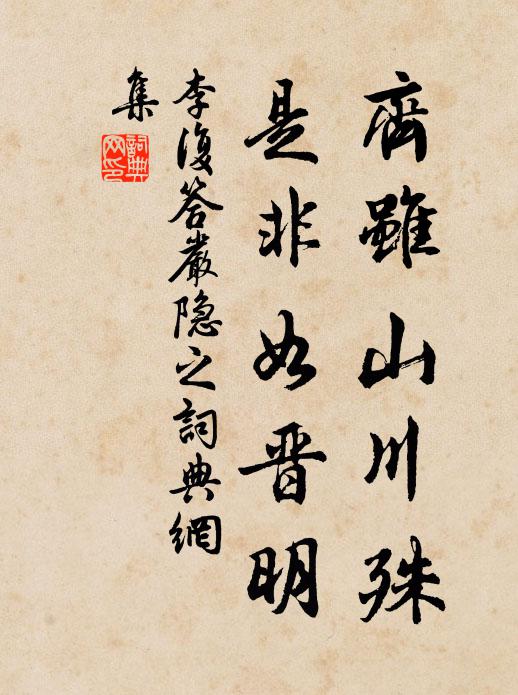 齊雖山川殊
是非如晋明
李復答嚴隐之詞典網
集
詞典
网印